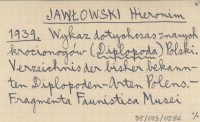 JAWŁOWSKI Hieronim
1939. Wykaz dotychczas znanych
krocionogów (Diplopoda) Polski.
Verzeichnis der bisher bekann-
ten Diplopoden-Arten Polens.-
Fragmenta Faunistica Musei